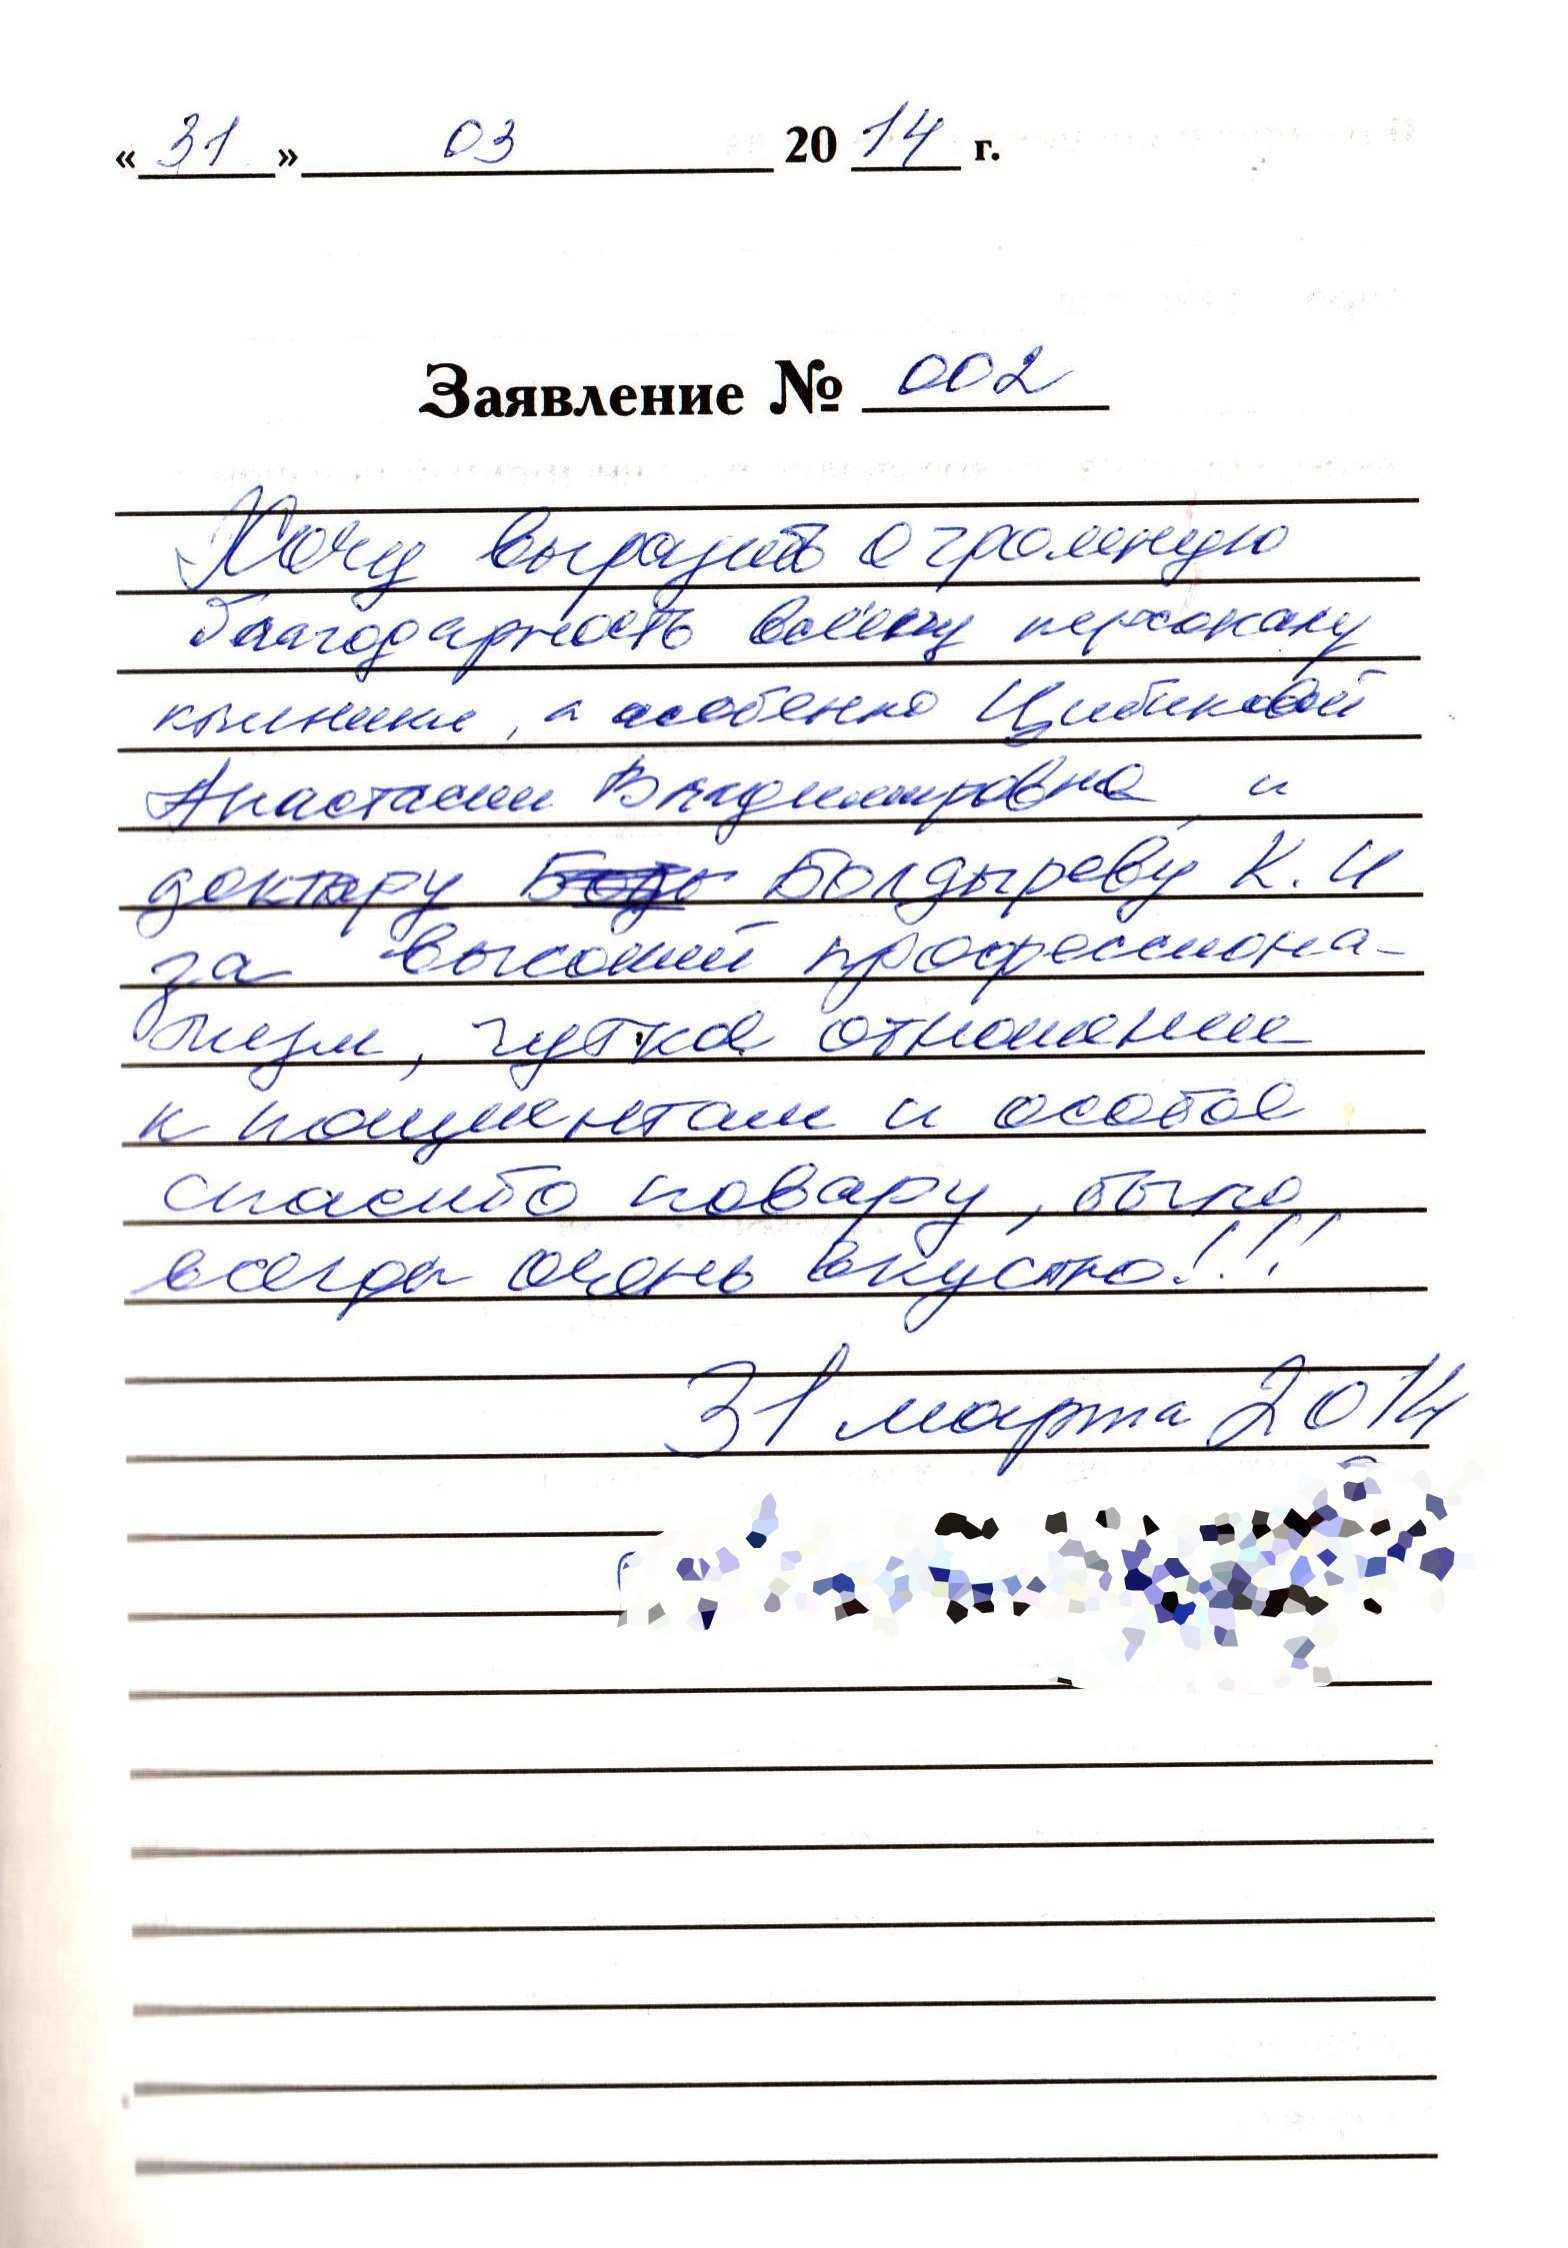 « 31 » 03 20 14 г.
Заявление № 002
Хочу выразить огромную
благодарность всему персоналу
клиники, а особенно Цибиковой
Анастасии Владимировне и
доктору Болдыреву К. И
за высокий профессиона-
лизм, чуткое отношение
к пациентам и особое
спасибо повару, было
всегда очень вкусно!!!
31 марта 2014